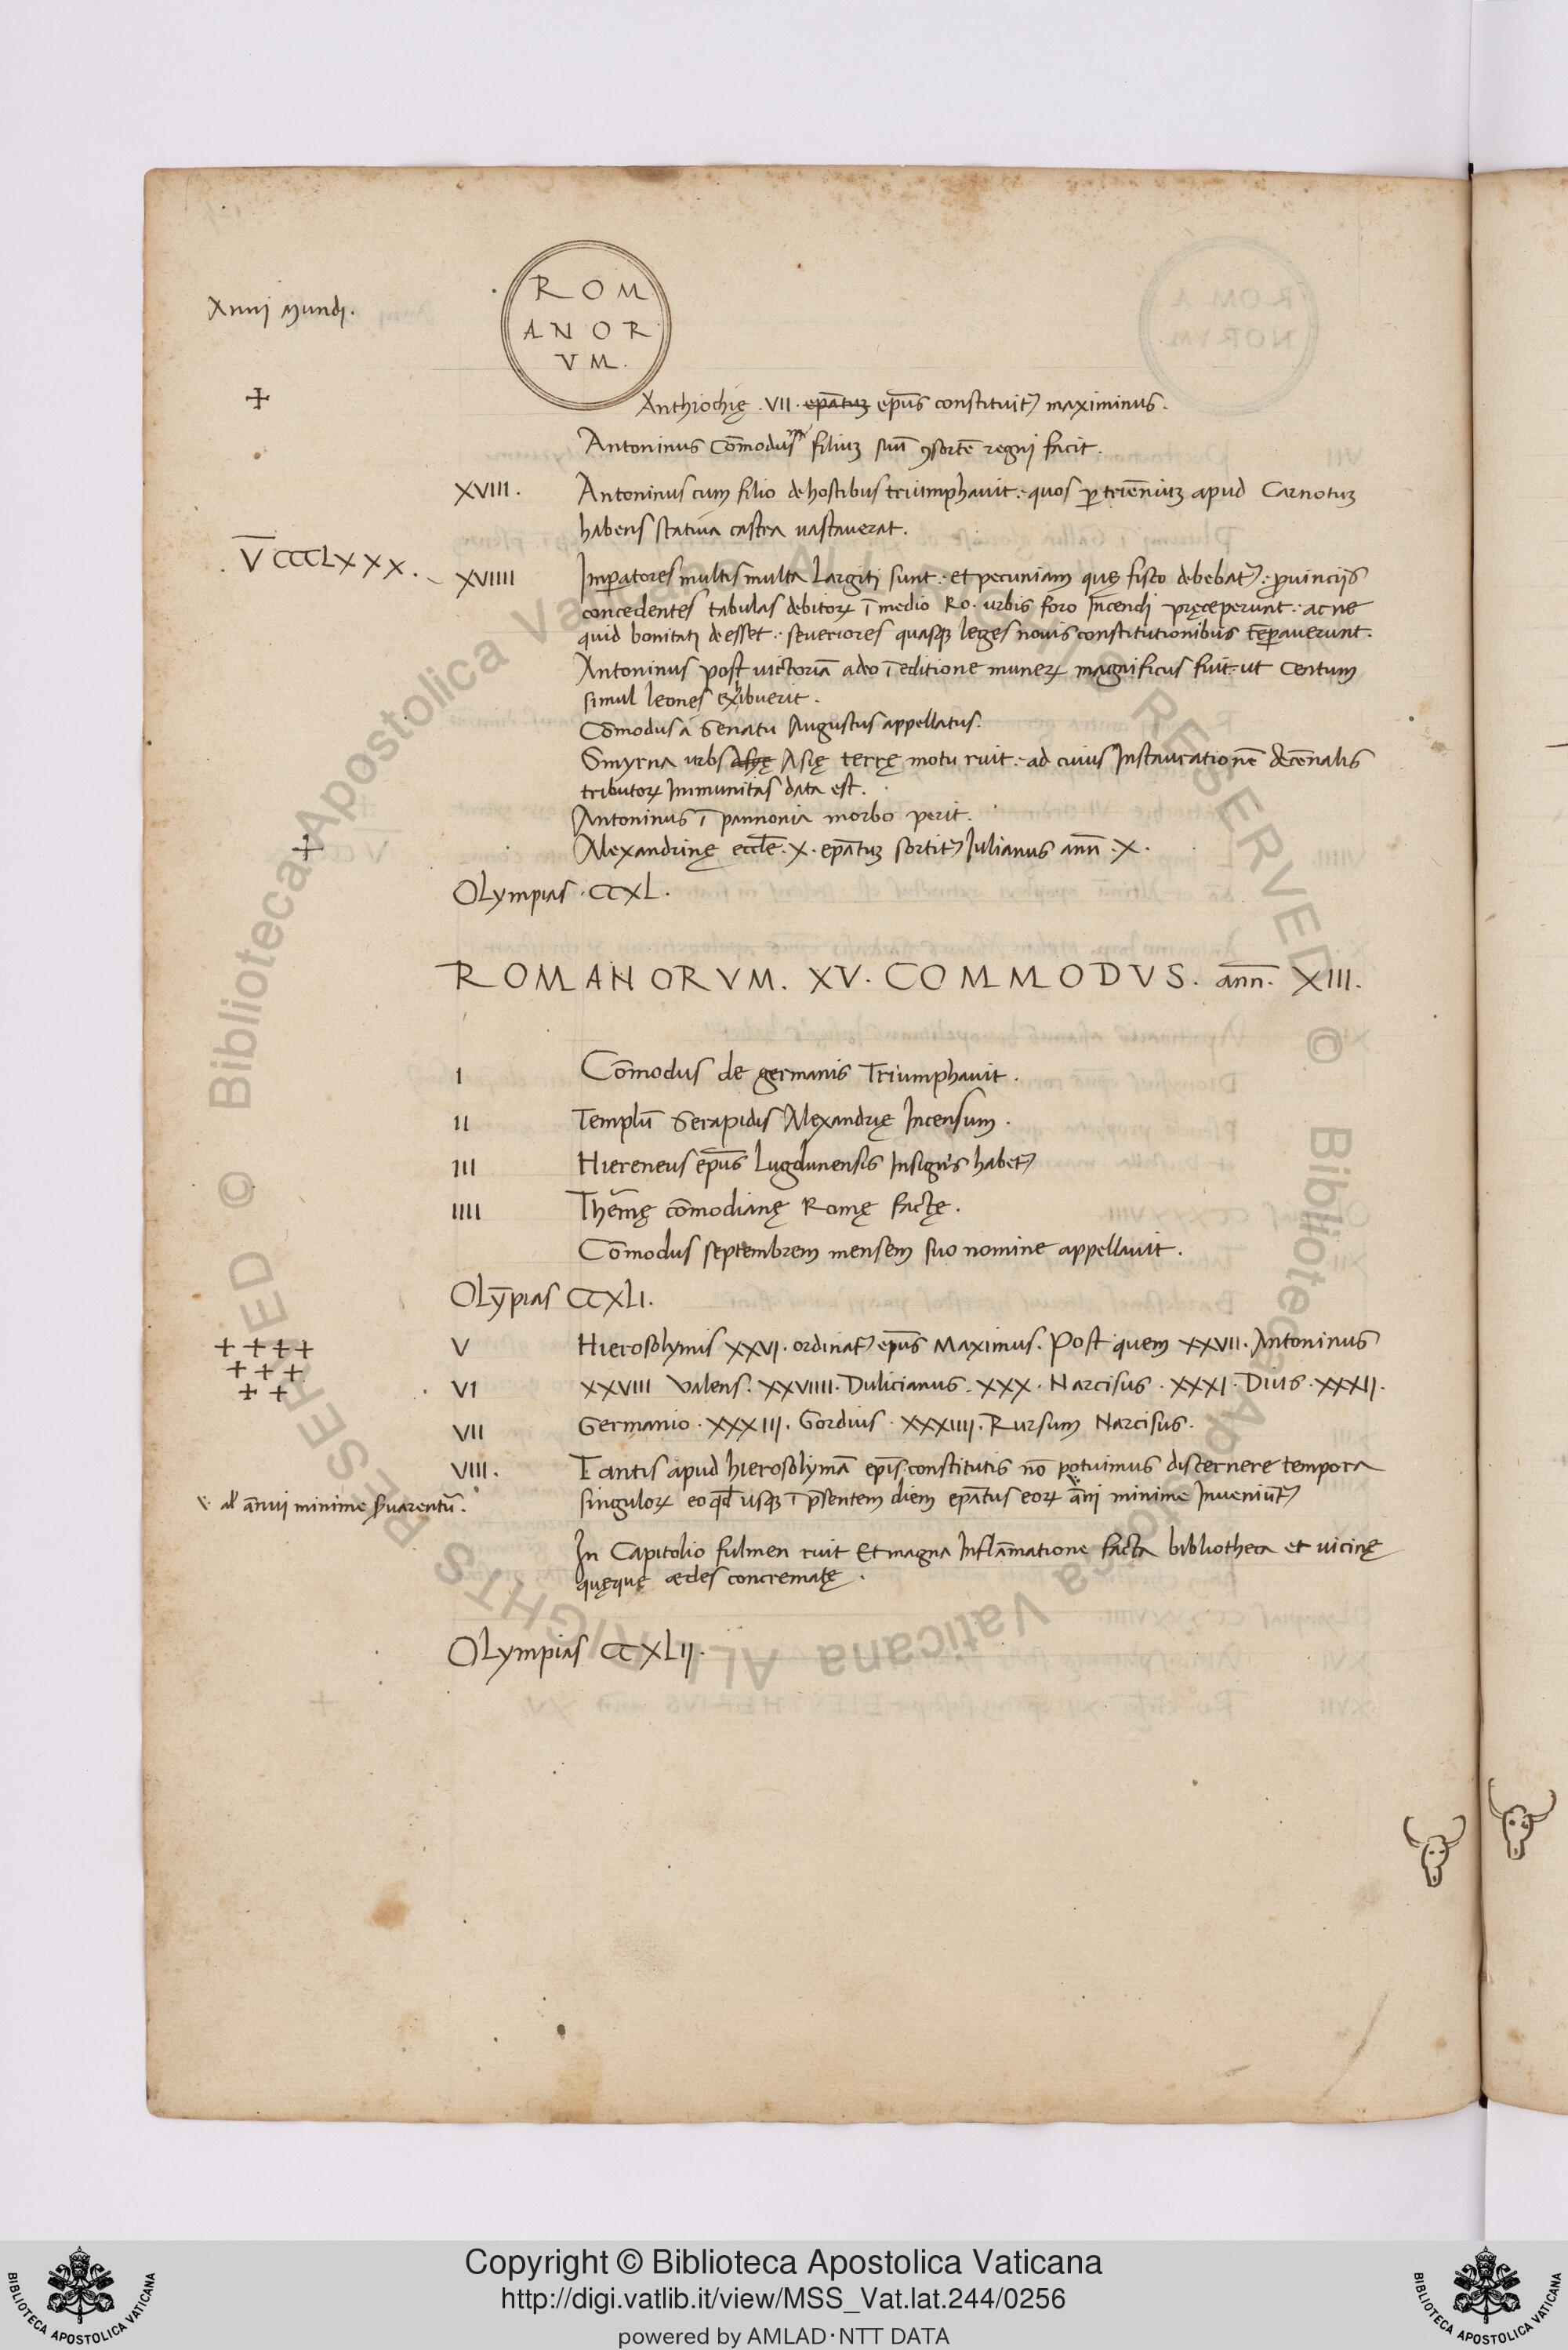 Anni Mundi.
ROM
ANOR
VM.
Anthiochię .VII. epātuʒ ep̄us constituit᷒ maximinus.
Antoninus Cōmodusm filiuʒ suū ꝯsortē regni facit.
XVIII. Antoninus cum filio de hostibus triumphauit: quos ꝑ triēniuʒ apud Carnotuʒ
habens statiua castra uastauerat.
V̅CCCLXXX.
XVIIII Imꝑatores multis multa Largiti sunt: et pecuniam quę fisco debebat᷒: ꝓuincijs
concedentes tabulas debitoꝝ ī medio Ro. urbis foro Incendi pręceperunt: ac ne
quid bonitati deesset: seueriores quasqʒ leges nouis constitutionibus tēꝑauerunt.
Antoninus post uictoriā adeo ī editione muneꝝ magnificus fuit: ut Centum
simul leones exhibuerit.
Cōmodus a Senatu Augustus appellatus.
Smyrna urbs Asyę Asię terrę motu ruit: ad cuius Instaurationē decēnalis
tributoꝝ Immunitas data est.
Antoninus ī pannonia morbo perit.
Alexandrinę eccłe .X. epātuʒ sortit᷒ Iulianus anñ .X.
OLympias . CCXL.
ROMANORVM. XV. COMMODVS. anñ. XIII.
I Cōmodus de germanis Triumphauit.
II Templū Serapidis Alexandrię Incensum.
III Hiereneus ep̄us Lugdunensis Insignis habet᷒
IIII Thermę cōmodianę Romę factę.
Cōmodus septembrem mensem suo nomine appellauit.
OLȳpias CCXLI.
V Hierosolymis XXVI. ordinat᷒ ep̄us Maximus. Post quem XXVII. Antoninus
VI XXVIII Valens. XXVIIII. Dulicianus. XXX. Narcisus. XXXI. Dius. XXXII.
VII Germanio. XXXIII. Gordius. XXXIIII. Rursum Narcisus.
VIII. Tantis apud hierosolymā ep̄is constitutis nō potuimus discernere tempora
singuloꝝ eo qđ usqʒ ī p̄sentem diem epātus eoꝝ āni minime Inueniūt᷒
al̓ ānui minime s̄uarentū.
In Capitolio fulmen ruit Et magna Inflāmatione facta bibliotheca et uicinę
quęquę aedes concrematę.
OLympias CCXLII.
© Biblioteca Apostolica Vaticana ALL RIGHTS RESERVED © Biblioteca Apostolica Vaticana ALL RIGHTS RESERVED
BIBLIOTECA APOSTOLICA VATICANA
Copyright © Biblioteca Apostolica Vaticana
http://digi.vatlib.it/view/MSS_Vat.lat.244/0256
powered by AMLAD·NTT DATA
BIBLIOTECA APOSTOLICA VATICANA